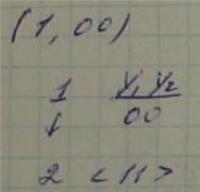 (1,00)
1 Y₁ Y₂
↓ 00
2 <11>